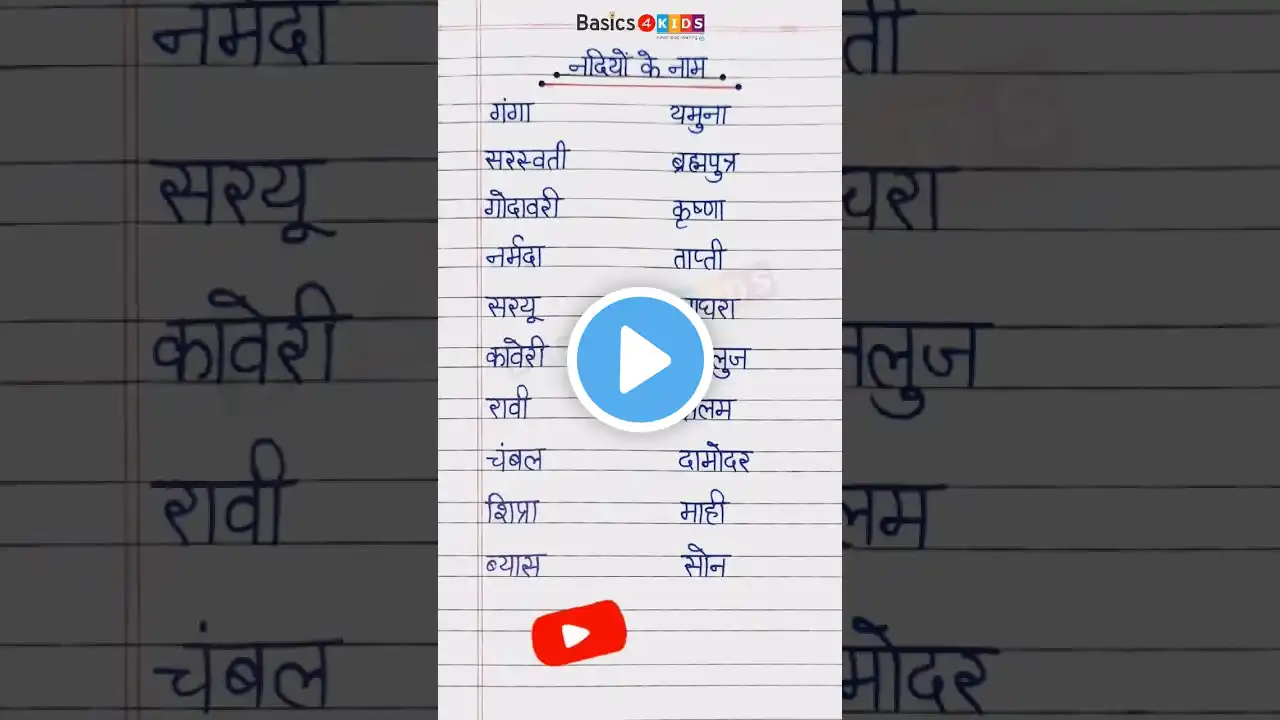 Basics4KIDS
नदियों के नाम
गंगा यमुना
सरस्वती ब्रह्मपुत्र
गोदावरी कृष्णा
नर्मदा ताप्ती
सरयू
कावेरी
रावी
चंबल दामोदर
शिप्रा माही
ब्यास सोन
नर्मदा
सरयू
कावेरी
रावी
चंबल